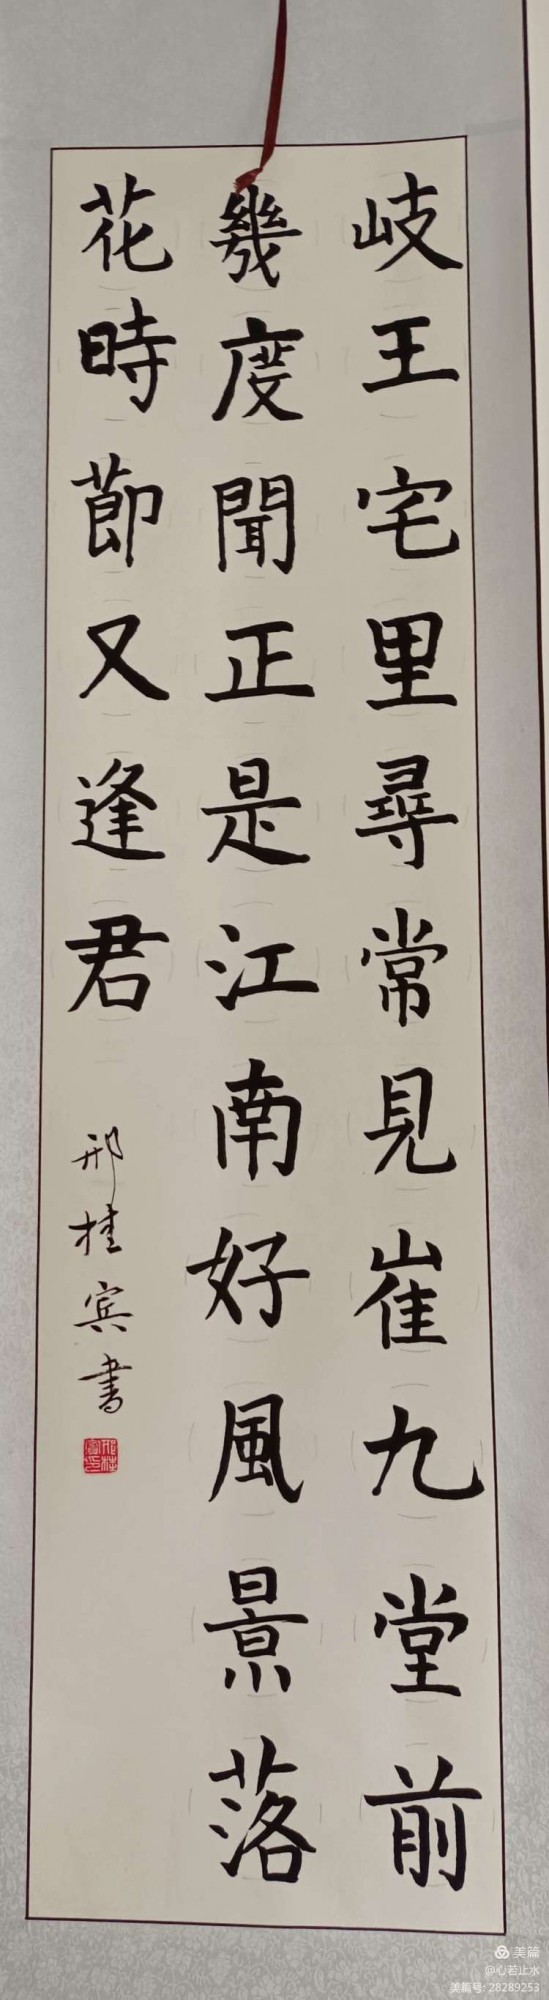 岐王宅里尋常見崔九堂前
幾度聞正是江南好風景落
花時節又逢君
邢桂宾书
美篇
@心若止水
美篇号: 28289253